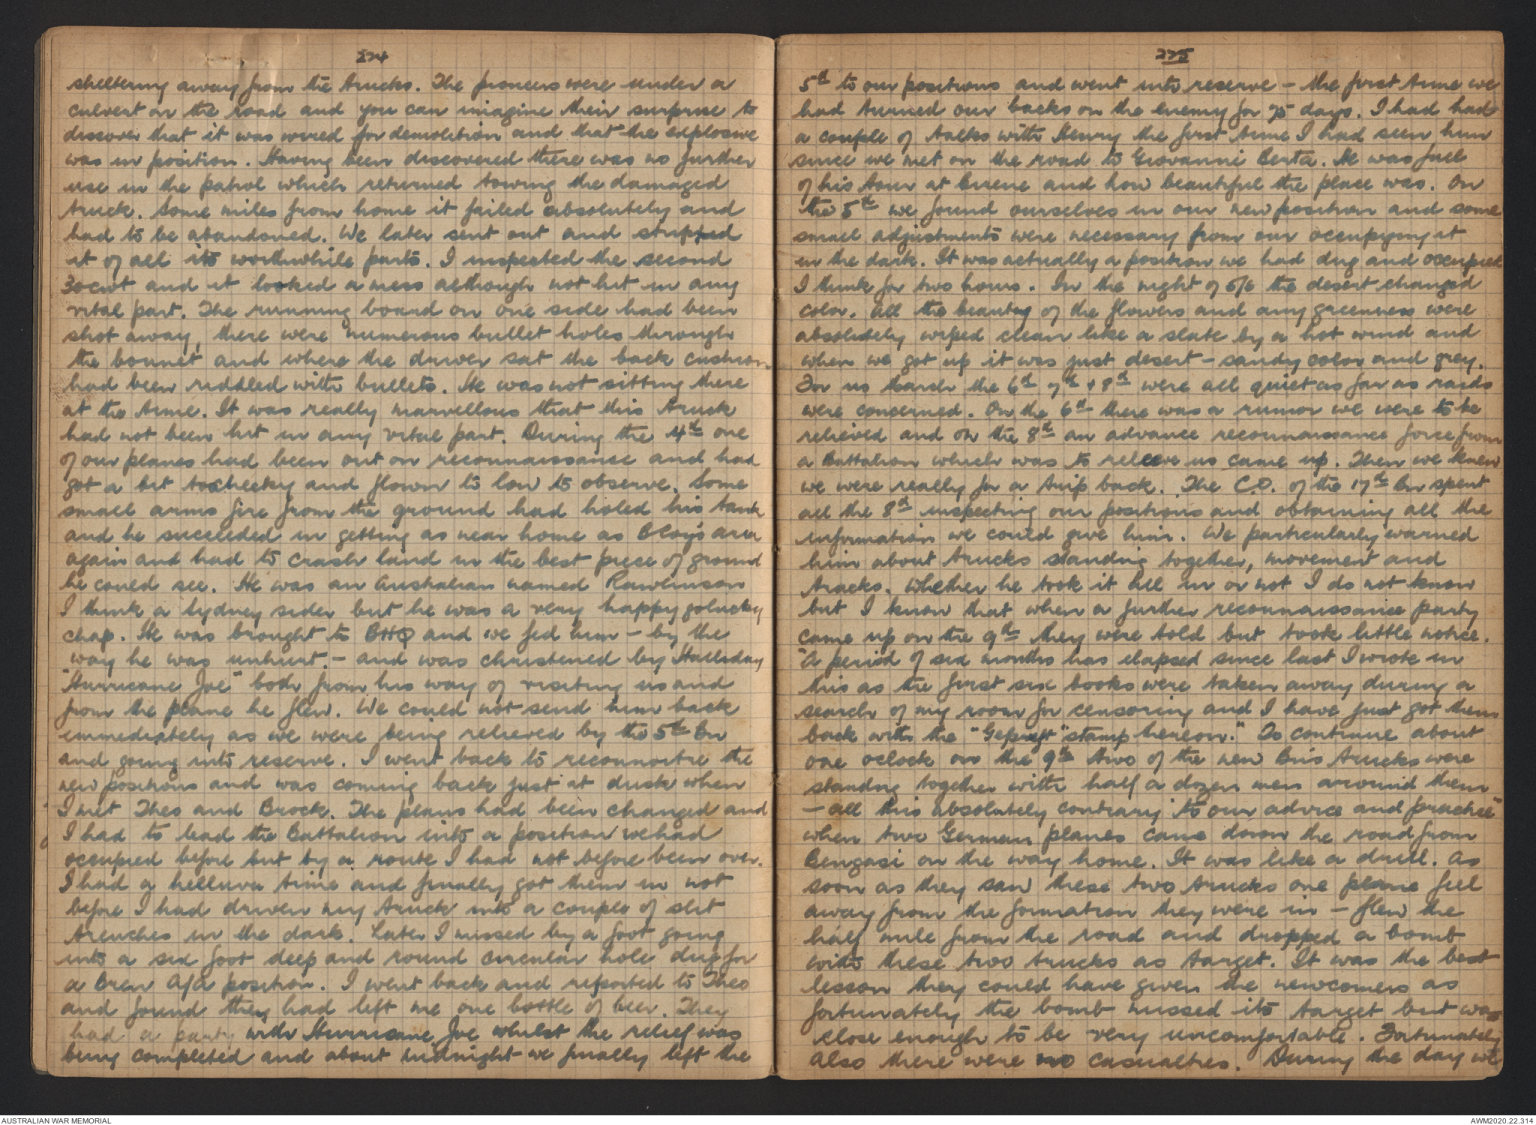 224
sheltering away from the trucks. The pioneers were under a
culvert on the road and you can imagine their surprise to
discover that it was wired for demolition and that the explosive
was in position. Having been discovered there was no further
use in the patrol which returned towing the damaged
truck. Some miles from home it failed absolutely and
had to be abandoned. We later sent out and stripped
it of all its worthwhile parts. I inspected the second
30cwt and it looked a mess although not hit in any
vital part. The running board on one side had been
shot away, there were numerous bullet holes through
the bonnet and where the driver sat the back cushion
had been riddled with bullets. He was not sitting there
at the time. It was really marvellous that this truck
had not been hit in any vital part. During the 4th one
of our planes had been out on reconnaissance and had
got a bit too cheeky and flown to low to observe. Some
small arms fire from the ground had holed his tank
and he succeeded in getting as near home as B Coy's area
again and had to crash land in the best piece of ground
he could see. He was an Australian named Rawlinson
I think a Sydney sider but he was a very happy golucky
chap. He was brought to BHQ and we fed him - by the
way he was unhurt. - and was christened by Halliday
"Hurricane Joe" both from his way of visiting us and
from the plane he flew. We could not send him back
immediately as we were being relieved by the 5th Bn
and going into reserve. I went back to reconnoitre the
new positions and was coming back just at dusk when
I met Theo and Brock. The plans had been changed and
I had to lead the Battalion into a position we had
occupied before but by a route I had not before been over.
I had a helluva time and finally got them in not
before I had driven my truck into a couple of slit
trenches in the dark. Later I missed by a foot going
into a six foot deep and round circular hole dug for
a Bren A/A position. I went back and reported to Theo
and found they had left me one bottle of beer. They
had a party with Hurricane Joe whilst the relief was
being completed and about midnight we finally left the
225
5th to our positions and went into reserve - the first time we
had turned our backs on the enemy for 75 days. I had had
a couple of talks with Henry the first time I had seen him
since we met on the road to Giovanni Berta. He was full
of his tour at Cirene and how beautiful the place was. On
the 5th we found ourselves in our new position and some
small adjustments were necessary from our occupying it
in the dark. It was actually a position we had dug and occupied
I think for two hours. In the night of 5/6 the desert changed
color. All the beauty of the flowers and any greenness were
absolutely wiped clean like a slate by a hot wind and
when we got up it was just desert - sandy color and grey.
For us March the 6th 7th & 8th were all quiet as far as raids
were concerned. On the 6th there was a rumor we were to be
relieved and on the 8th an advance reconnaissance force from
a Battalion which was to releeve us came up. Then we knew
we were really for a trip back. The C.O. of the 17th Bn spent
all the 8th inspecting our positions and obtaining all the
information we could give him. We particularly warned
him about trucks standing together, movement and
tracks. Whether he took it all in or not I do not know
but I know that when a further reconnaissance party
came up on the 9th they were told but took little notice.
"A period of six months has elapsed since last I wrote in
this as the first six books were taken away during a
search of my room for censoring and I have just got them
back with the "Gepruft" stamp hereon." To continue about
one oclock on the 9th two of the new Bn's trucks were
standing together with half a dozen men around them
- all this absolutely contrary to our advice and practice
when two German planes came down the road from
Bengasi on the way home. It was like a drill. As
soon as they saw these two trucks one plane fell
away from the formation they were in - flew the
half mile from the road and dropped a bomb
with these two trucks as target. It was the best
lesson they could have given the newcomers as
fortunately the bomb missed its target but was
close enough to be very uncomfortable. Fortunately
also there were no casualties. During the day we
AUSTRALIAN WAR MEMORIAL
AWM2020.22.314